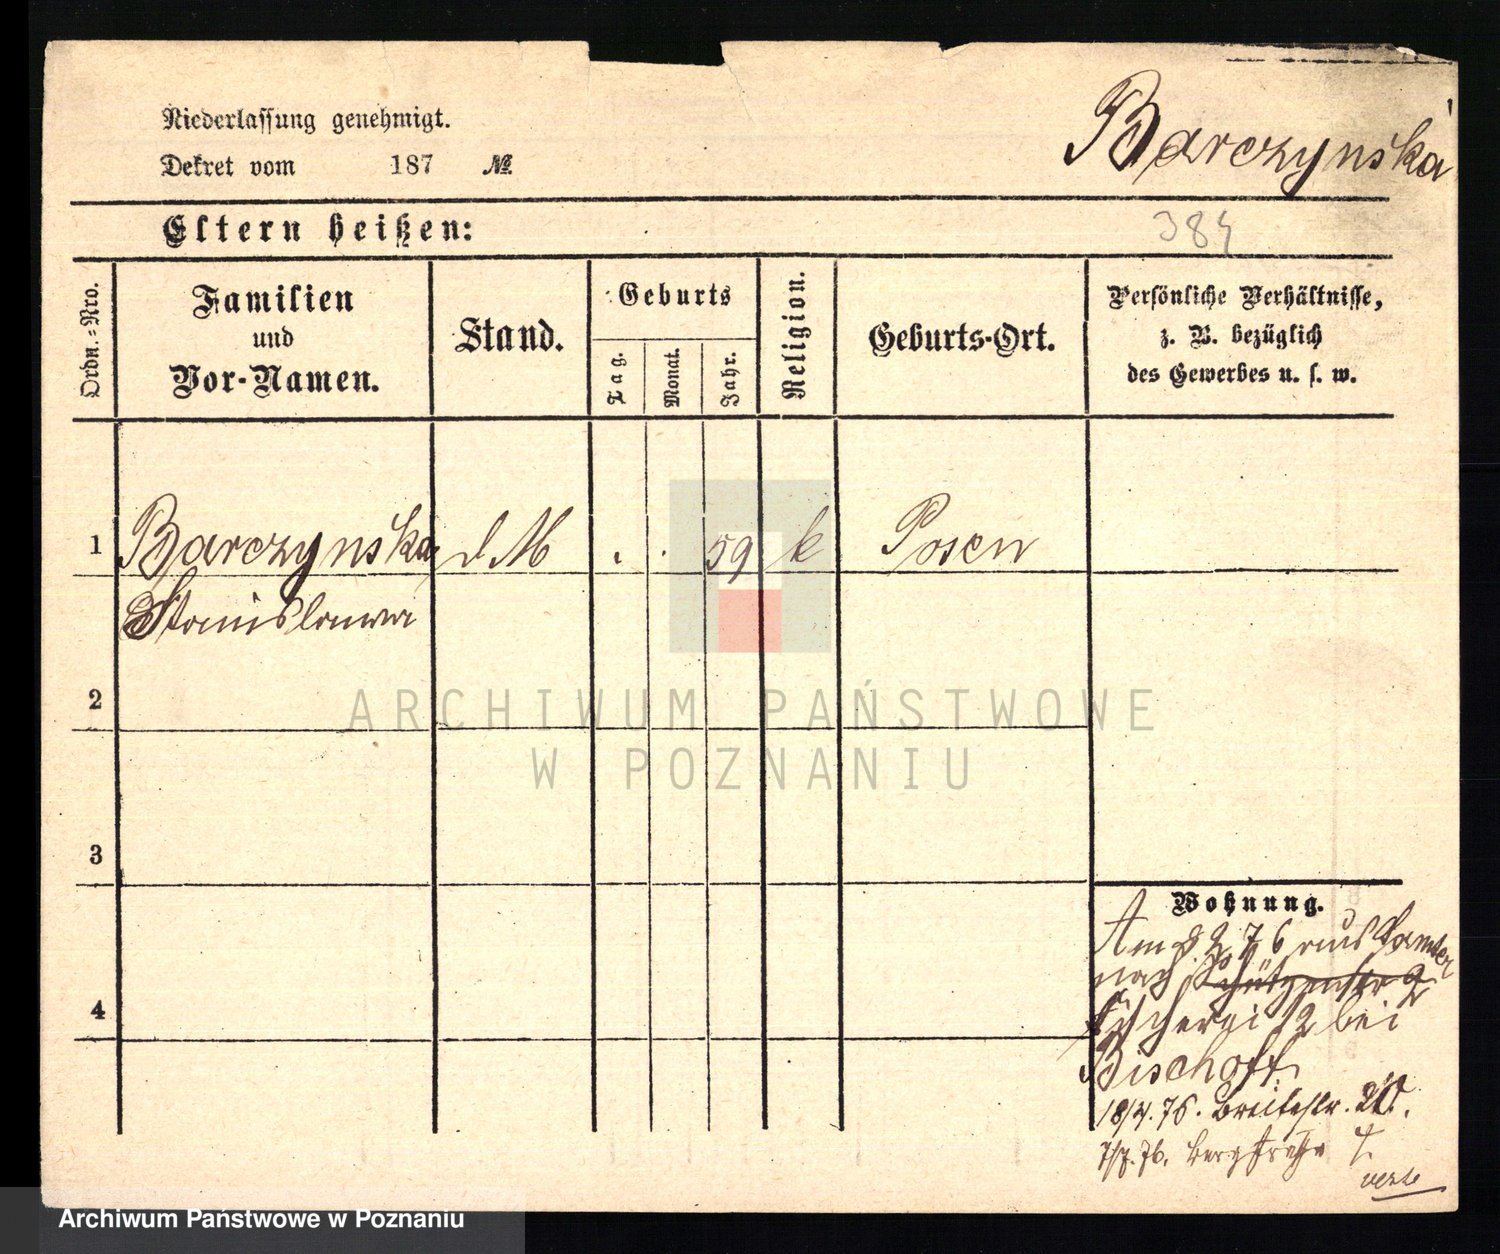 Niederlassung genehmigt.
Dekret vom 187 №
Barczynska
Eltern heißen:
384
Ordn.-Nro.
Familien
und
Vor-Namen.
Stand.
Geburts
Tag.
Monat.
Jahr.
Religion.
Geburts-Ort.
Persönliche Verhältnisse,
z. B. bezüglich
des Gewerbes u. s. w.
1 Barczynska d M . . 59 k Posen
Stanislawa
2
ARCHIWUM PAŃSTWOWE
W POZNANIU
3
Wohnung.
Am 8 2 76 aus
nach Schützenstr 9
Fischerei 12 bei
4
Bischoff
18/4. 76. Breitestr. 20.
7/7. 76. Bergstraße
Archiwum Państwowe w Poznaniu